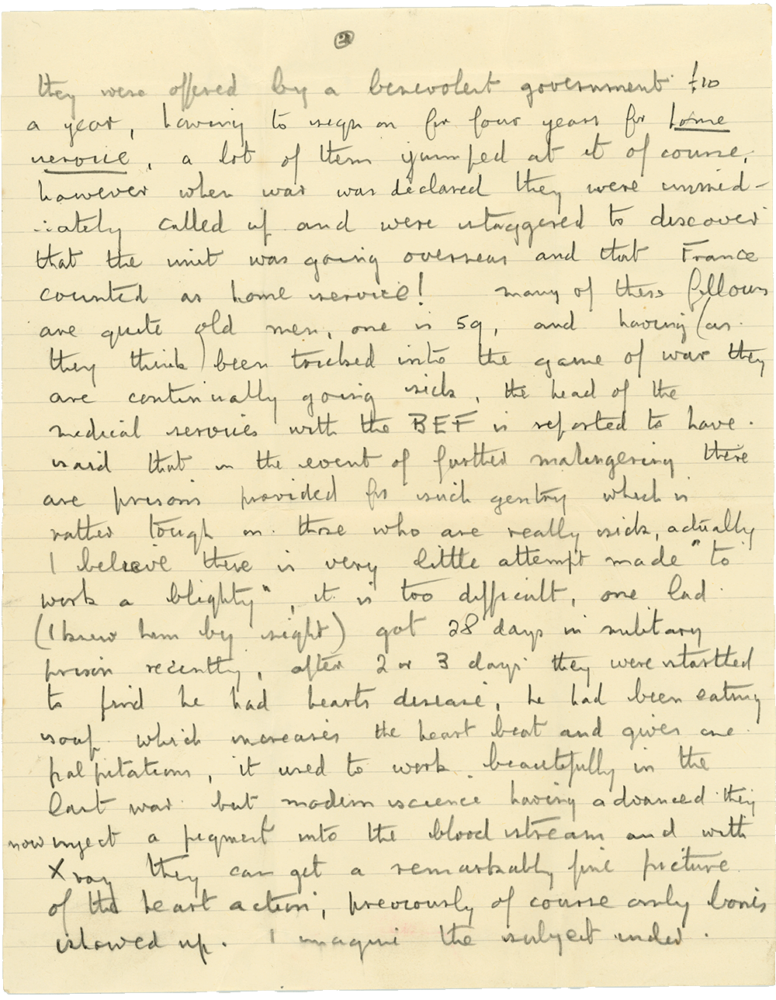 2
they were offered by a benevolent government £10
a year, having to sign on for four years for home
service, a lot of them jumped at it of course,
however when war was declared they were immed-
iately called up and were staggered to discover
that the unit was going overseas and that France
counted as home service! many of these fellows
are quite old men, one is 59, and having (as
they think) been tricked into the game of war they
are continually going sick, the head of the
medical services with the BEF is reported to have
said that in the event of further malingering there
are prisons provided for such gentry which is
rather tough on those who are really sick, actually
I believe there is very little attempt made "to
work a blighty", it is too difficult, one lad
(I knew him by sight) got 28 days in military
prison recently, after 2 or 3 days they were startled
to find he had hearts disease, he had been eating
soap which increases the heart beat and gives one
palpitations, it used to work beautifully in the
last war but modern science having advanced they
now inject a pigment into the blood stream and with
X ray they can get a remarkably fine picture
of the heart action, previously of course only bones
showed up. I imagine the subject under